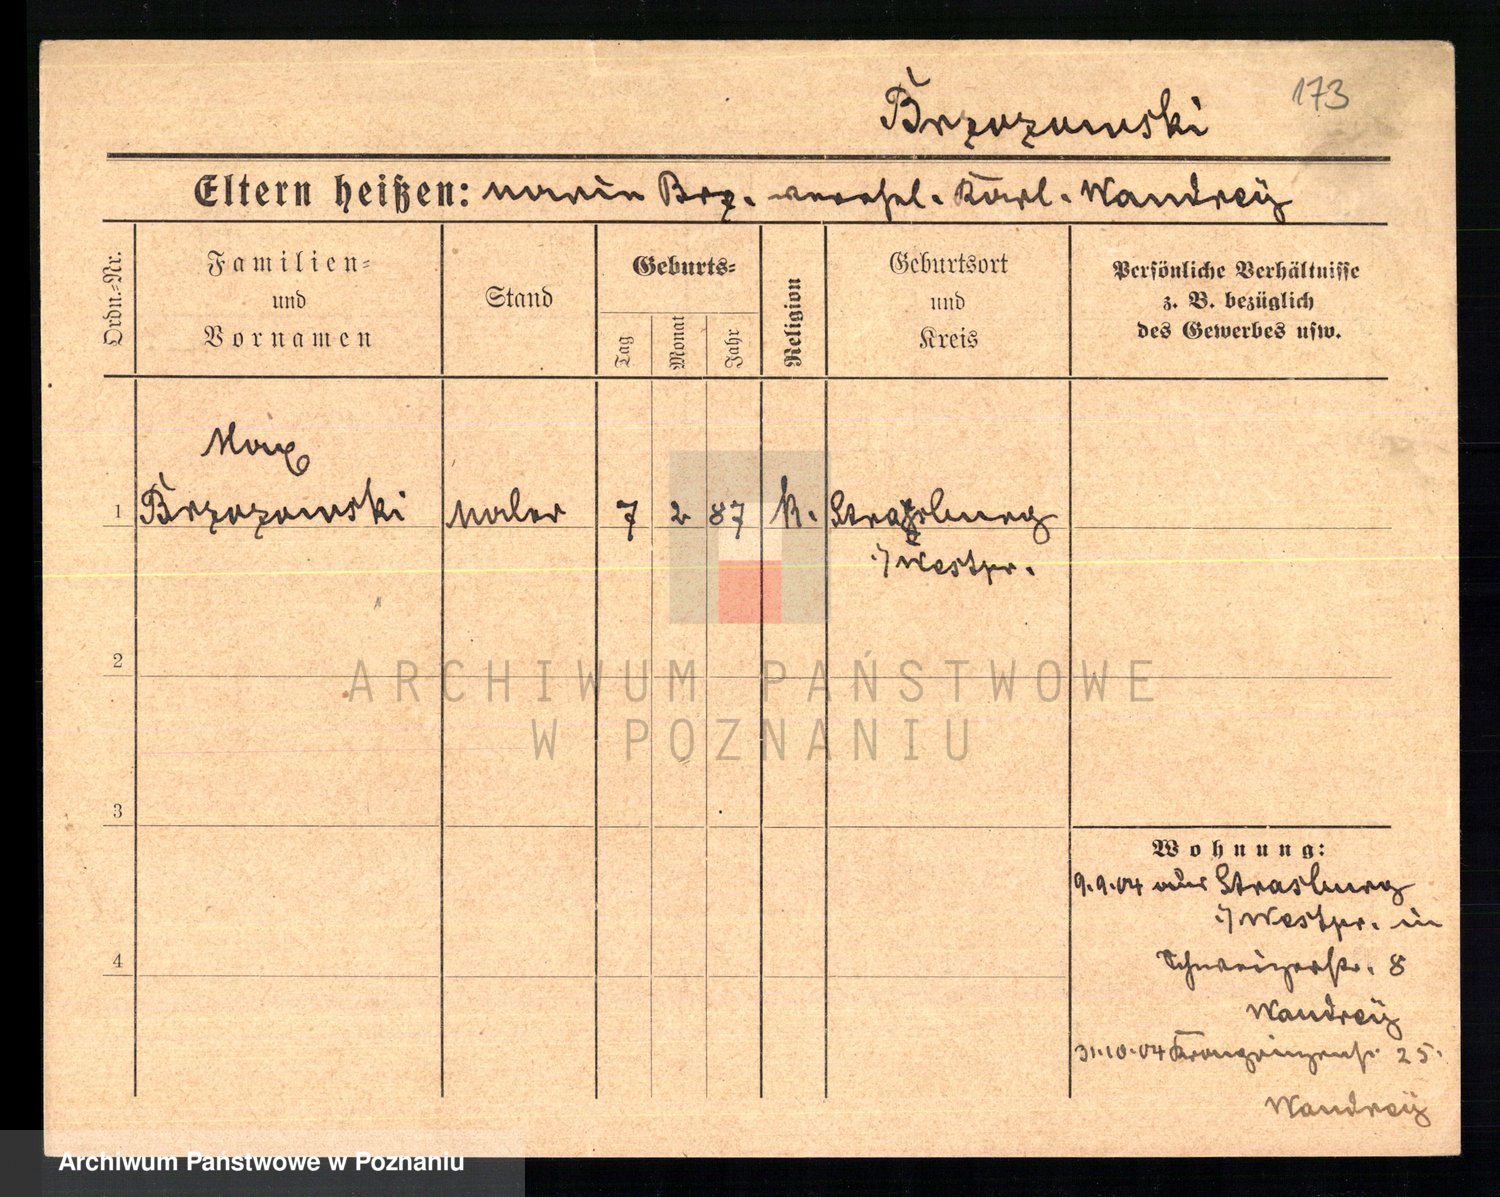 173
Brzozowski
Eltern heißen: Marie Brz. verehel. Karl. Wandrey
Ordn.-Nr.
Familien-
und
Vornamen
Stand
Geburts-
Tag
Monat
Jahr
Religion
Geburtsort
und
Kreis
Persönliche Verhältnisse
z. B. bezüglich
des Gewerbes usw.
Max
1 Brzozowski Maler 7 2 87 K. Strasburg
i/ Westpr.
2
ARCHIWUM PAŃSTWOWE
W POZNANIU
3
Wohnung:
9.9.04 aus Strasburg
i/ Westpr. in
4
Schweizerstr. 8
Wandrey
31.10.04 Kronprinzenstr. 25.
Wandrey
Archiwum Państwowe w Poznaniu